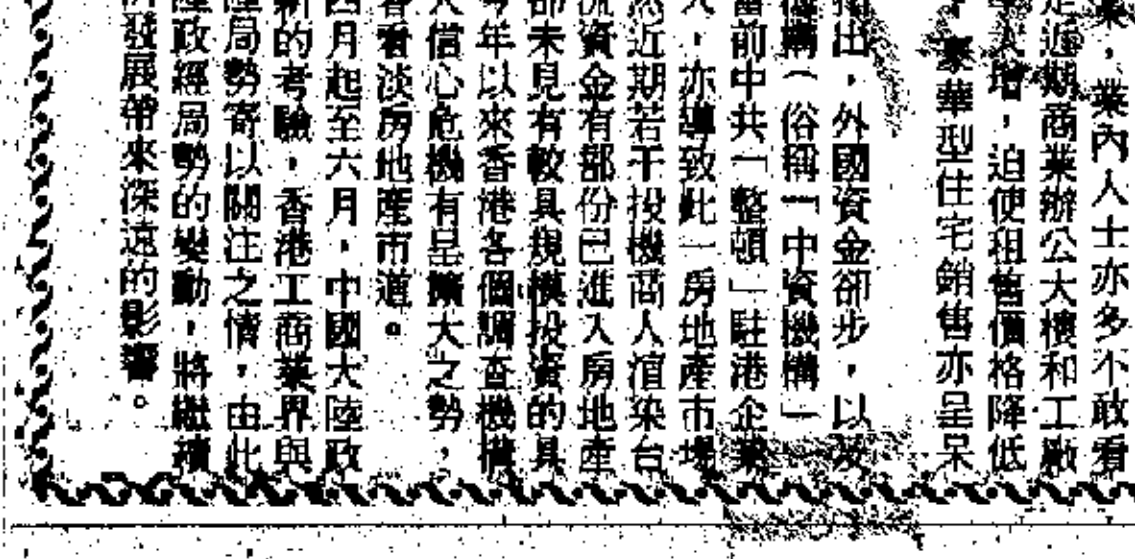 業，業內人士亦多不敢看
近期商業辦公大樓和工廠
大增，迫使租售價格降低
，豪華型住宅銷售亦呈呆
指出，外國資金卻步，以及
機構（俗稱「中資機構」
當前中共「整頓」駐港企業
，亦導致此一房地產市場
近期若干投機商人渲染台
流資金有部份已進入房地產
卻未見有較具規模投資的具
今年以來香港各個調查機構
人信心危機有呈擴大之勢，
看淡房地產市道。
四月起至六月，中國大陸政
新的考驗，香港工商業界與
陸局勢寄以關注之情，由此
陸政經局勢的變動，將繼續
發展帶來深遠的影響。